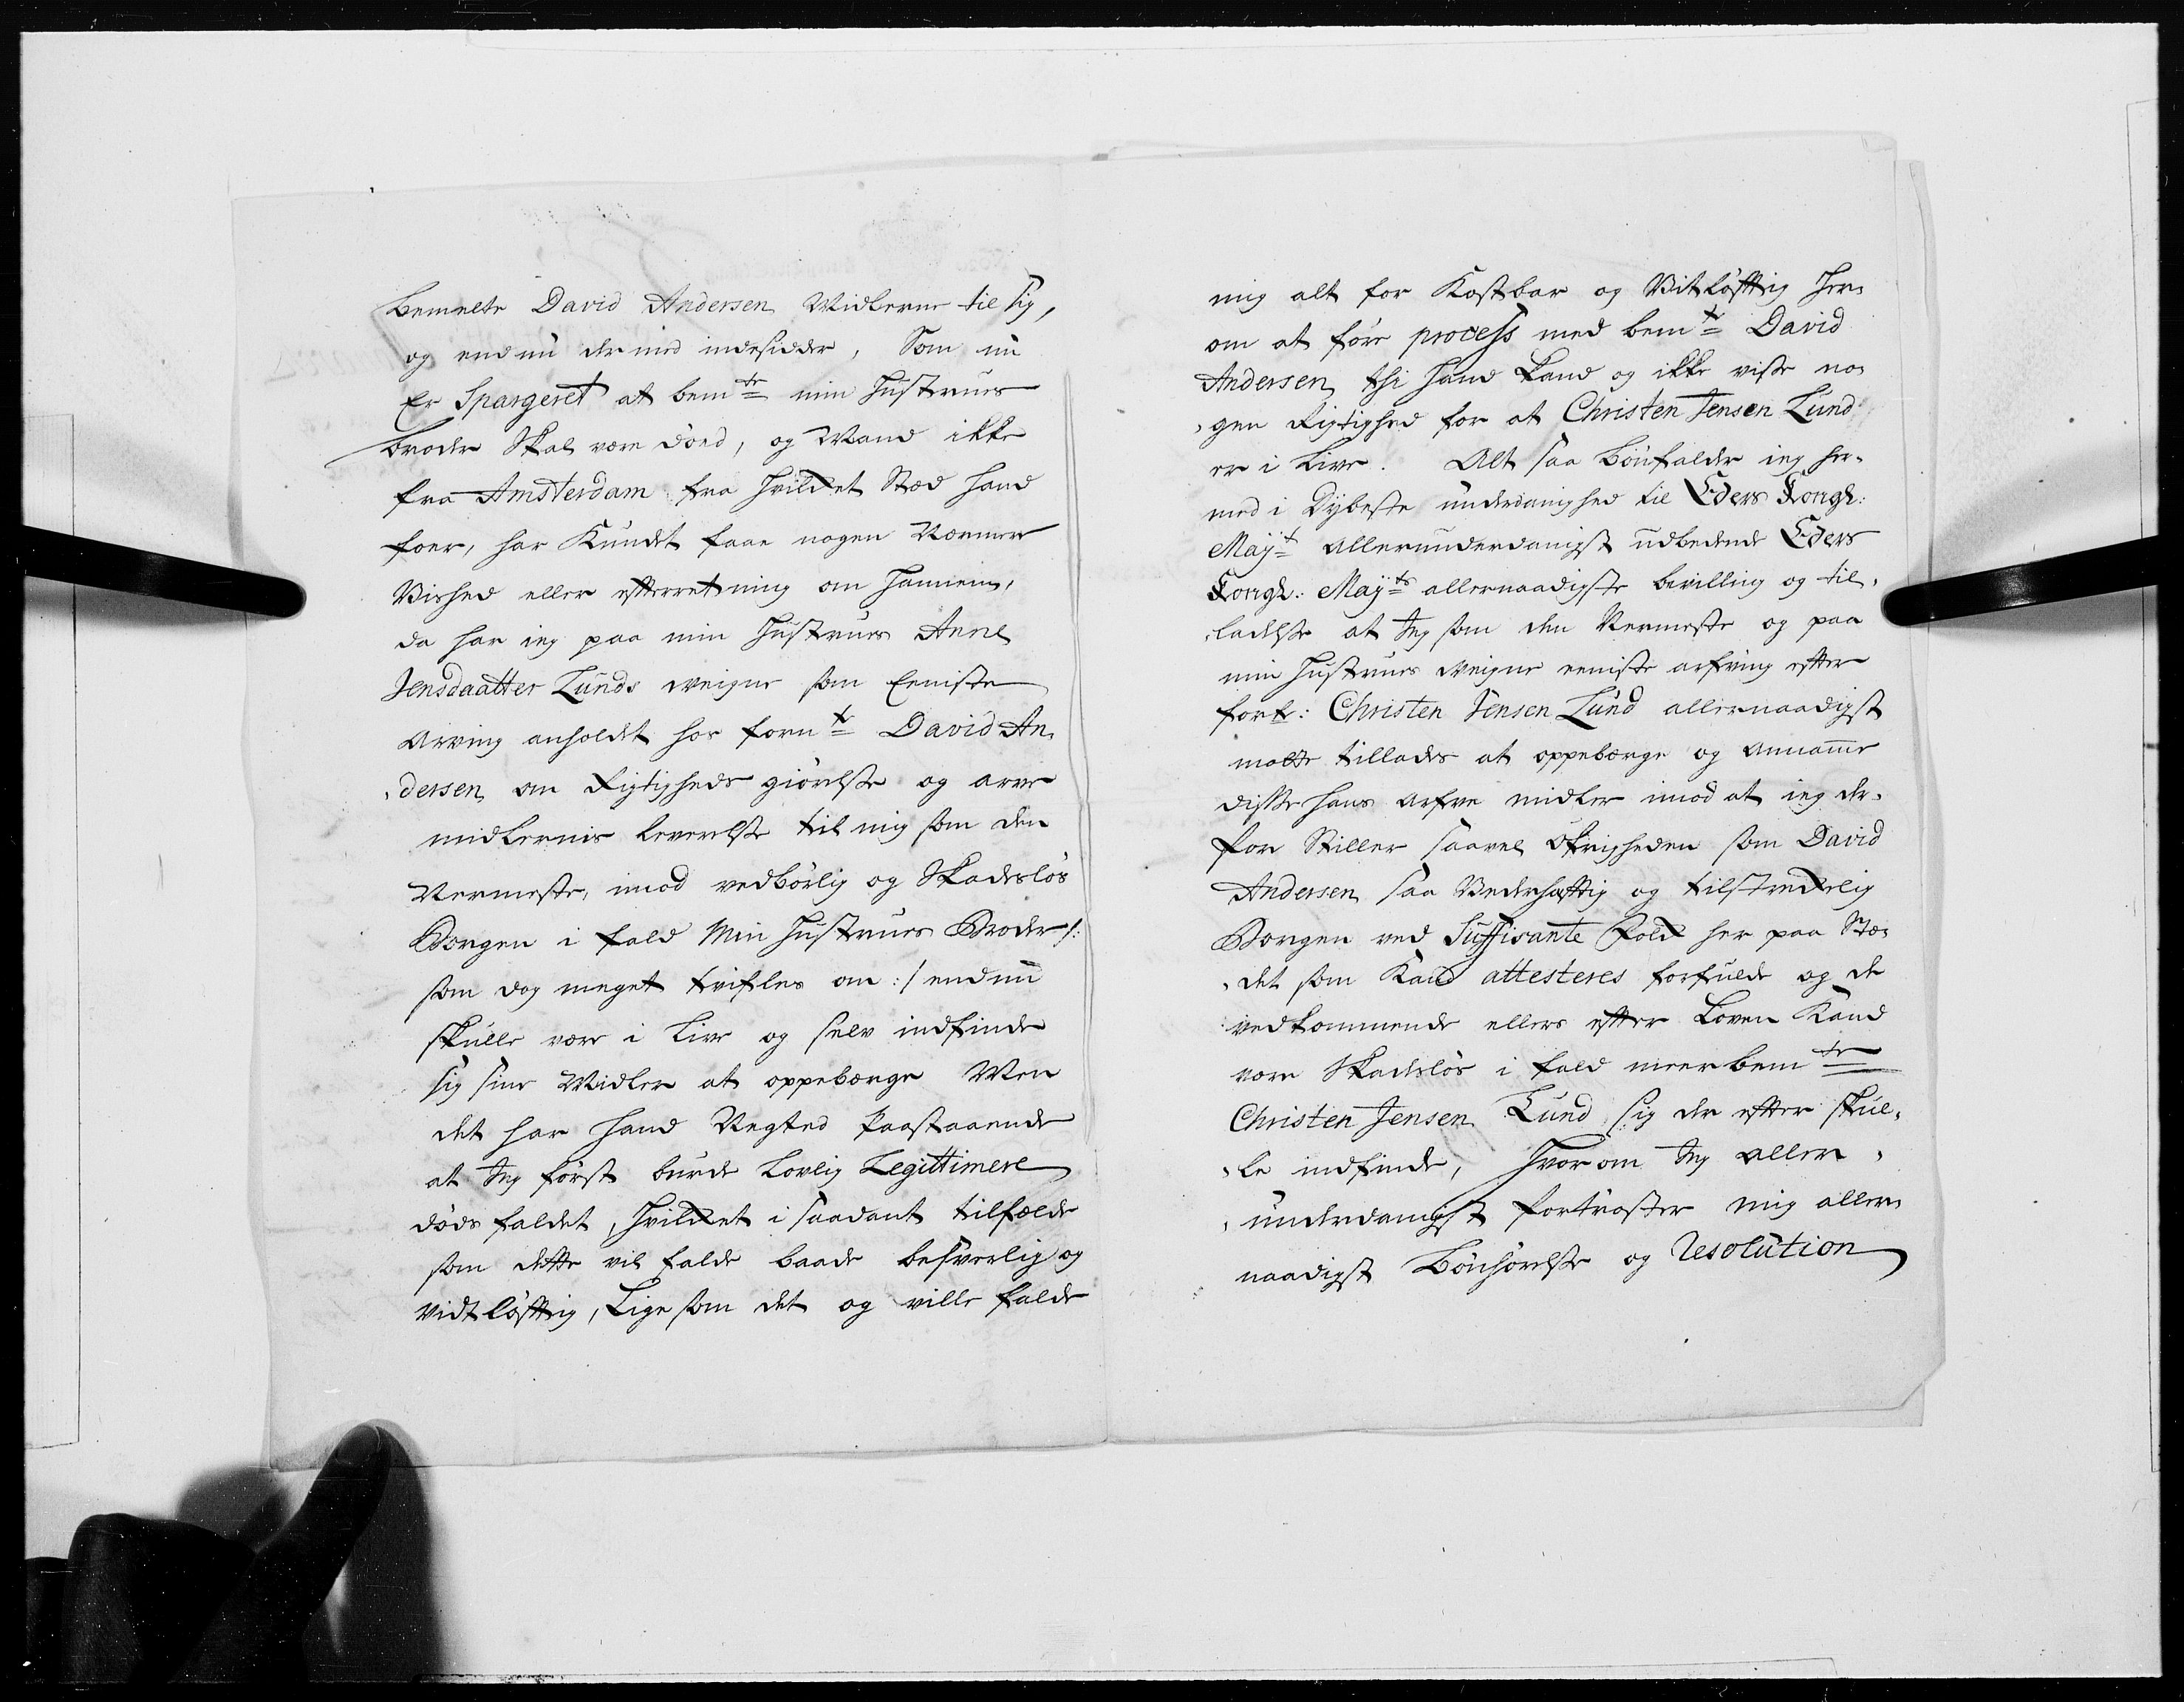 bemelte David Andersen Midlerne til sig,
og endnu dermed indesidder, Som nu
Er Spargeret at bemte min Hustrues
broder Skal være döed, og Mand ikke
fra Amsterdam fra hvilket Stæd hand
foer, har Kundet faae nogen Nærmere
Vished eller efterretning om hannem,
da har ieg paa min Hustrues Anne
Jensdaatter Lunds weigne som Eeniste
Arving anholdet hos fornte David An-
-dersen om Rigtigheds giörelse og arve
midlernis leverelse til mig som den
Nermeste, imod vedbörlig og Skadeslös
Borgen i fald Min Hustrues Broder /:
som dog meget tvifles om :/ endnu
skulle være i Live og selv indfinde
sig sine Midler at oppebærge Men
det har hand Negted paastaaende
at Jeg först burde lovlig Legittimere
döds faldet, hvilket i saadant tilfælde
som dette vil falde baade besværlig og
vidtlöfftig, Lige som det og ville falde
mig alt for Kostbar og Vitlöfftig her-
om at före process med bemte David
Andersen thi hand kand og ikke viste no-
-gen Rigtighed for at Christen Jensen Lund
er i Live. Alt saa bönfalder ieg her-
med i Dybeste underdanighed til Eders Kongl:
Mayt Allerunderdanigst udbedende Eders
Kongl: Mayts allernaadigste bevilling og til-
-ladelse at Jeg som den Nermeste og paa
min Hustrues weigne eeniste arfving efter
for: Christen Jensen Lund allernaadigst
motte tillades at oppebærge og Annamme
disse hans Arfve midler imod at ieg der-
for Stiller saavel öfrigheden som David
Andersen saa Vederhæfftig og tilstrekelig
Borgen ved Suffisante Folk her paa Stæ-
-det som Kand attesteres forfulde og de
vedkommende ellers efter Loven Kand
være Skadeslös i fald meerbemte
Christen Jensen Lund sig der efter skul-
-le indfinde, hvorom Jeg aller-
-underdanigst fortröster mig aller-
naadigst Bönhörelse og Resolution